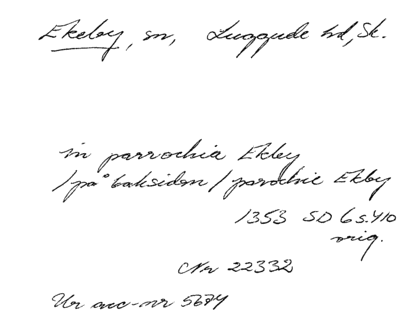 Ekeby, sn, Luggude hd, Sk.
in parrochia Ekby
/på baksidan/ parochie Ekby
1353 SD 6 s. 410
orig.
Nr 22332
Ur acc-nr 5674